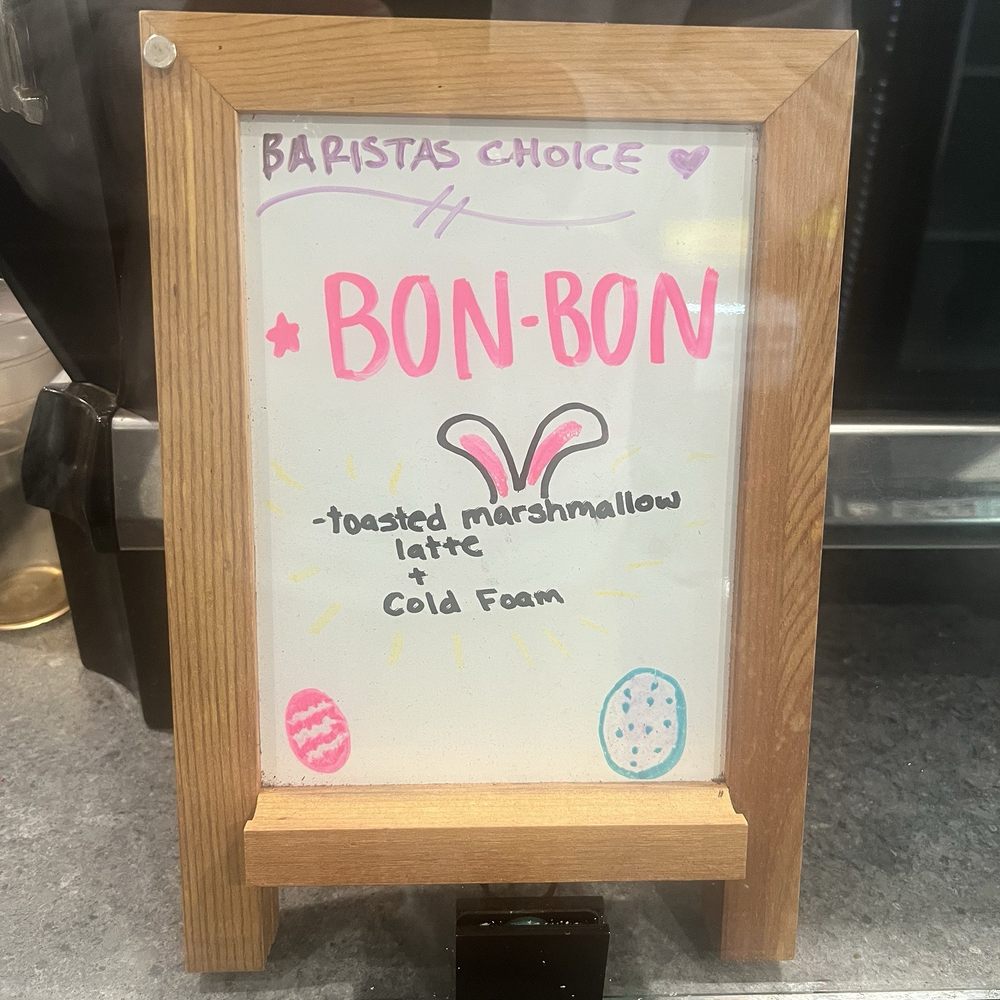 BARISTAS CHOICE
BON-BON
-toasted marshmallow
latte
+
Cold Foam